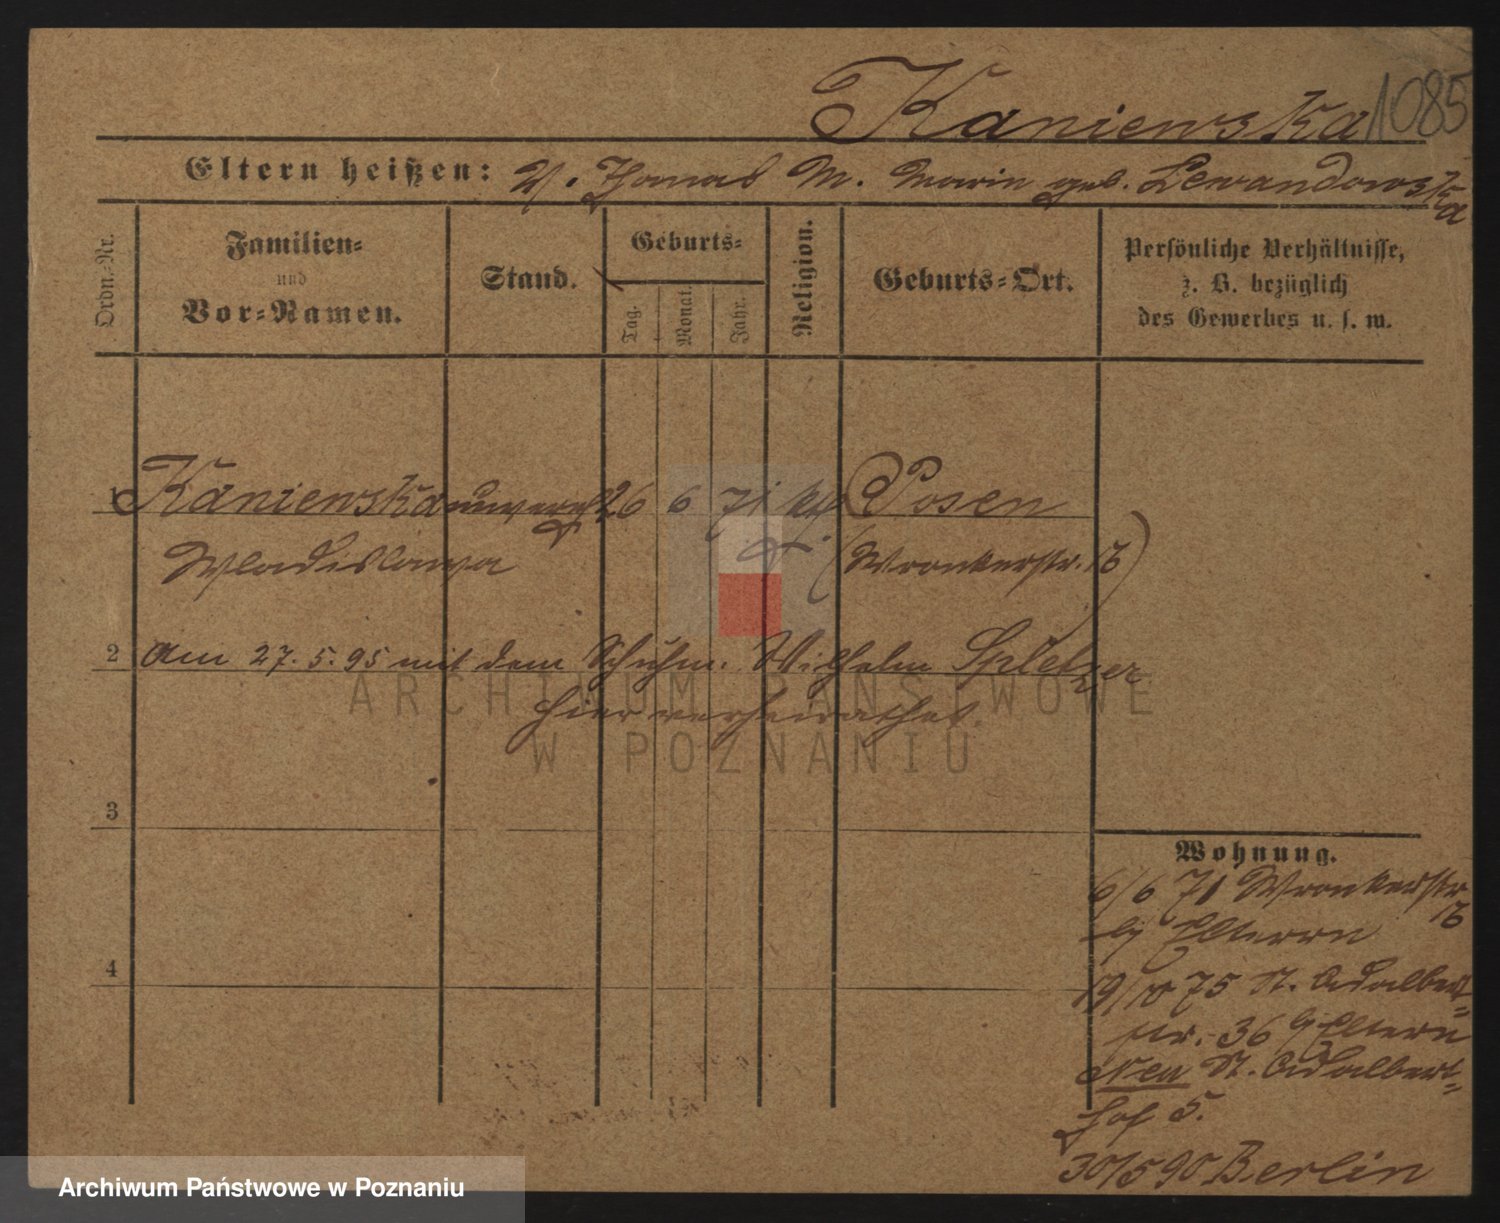 Kaniewska 1085
Eltern heißen: V. Thomas M. Marie geb. Lewandowska
Ordn.-Nr.
Familien-
und
Vor-Namen.
Stand.
Geburts-
Tag.
Monat.
Jahr.
Religion.
Geburts-Ort.
Persönliche Verhältnisse,
z. B. bezüglich
des Gewerbes u. s. w.
1 Kaniewska unvereh 26 6 71 kth Posen
Wladislawa (Wronkerstr. 16)
2 am 27. 5. 95 mit dem Schuhm. Wilhelm Spletzer
hier verheirathet.
3
4
Wohnung.
6/6 71 Wronkerstr
16
Eltern
75 St. Adalbert-
str. 36 Eltern
Neu St. Adalbert-
hof 5.
30/5 90 Berlin
ARCHIWUM PAŃSTWOWE
W POZNANIU
Archiwum Państwowe w Poznaniu